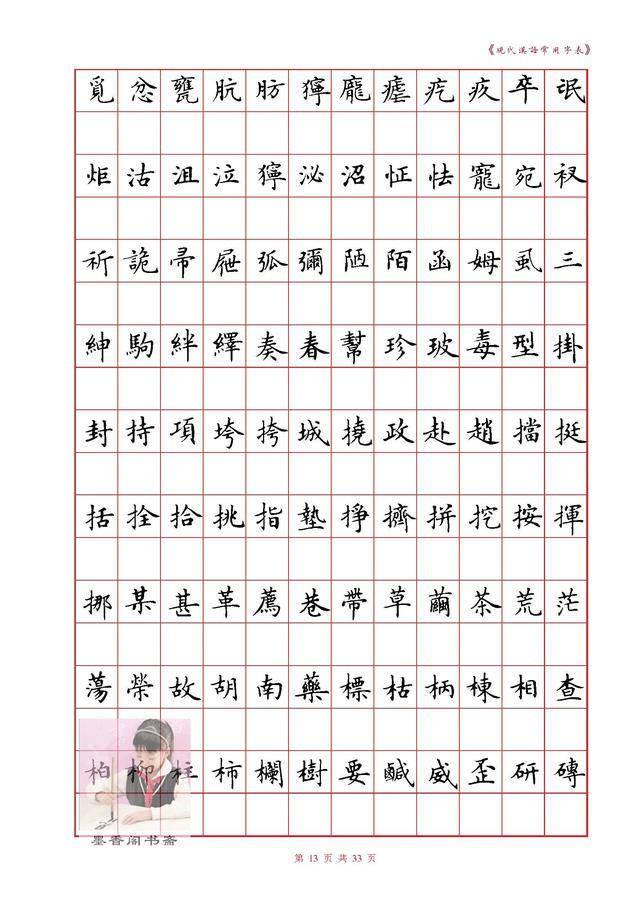 《现代汉语常用字表》
觅忿瓮肮肪獰龐瘧疙疚卒氓
炬沽沮泣獰泌沼怔怯寵宛衩
祈詭帚屉弧彌陋陌函姆虱三
紳駒絆繹奏春幫珍玻毒型掛
封持項垮挎城撓政赴趙擋挺
括拴拾挑指墊掙擠拼挖按揮
挪某甚革薦巷帶草繭茶荒茫
蕩榮故胡南藥標枯柄棟相查
柏柳柱柿欄樹要鹹威歪研磚
墨香阁书斋
第 13 页 共 33 页